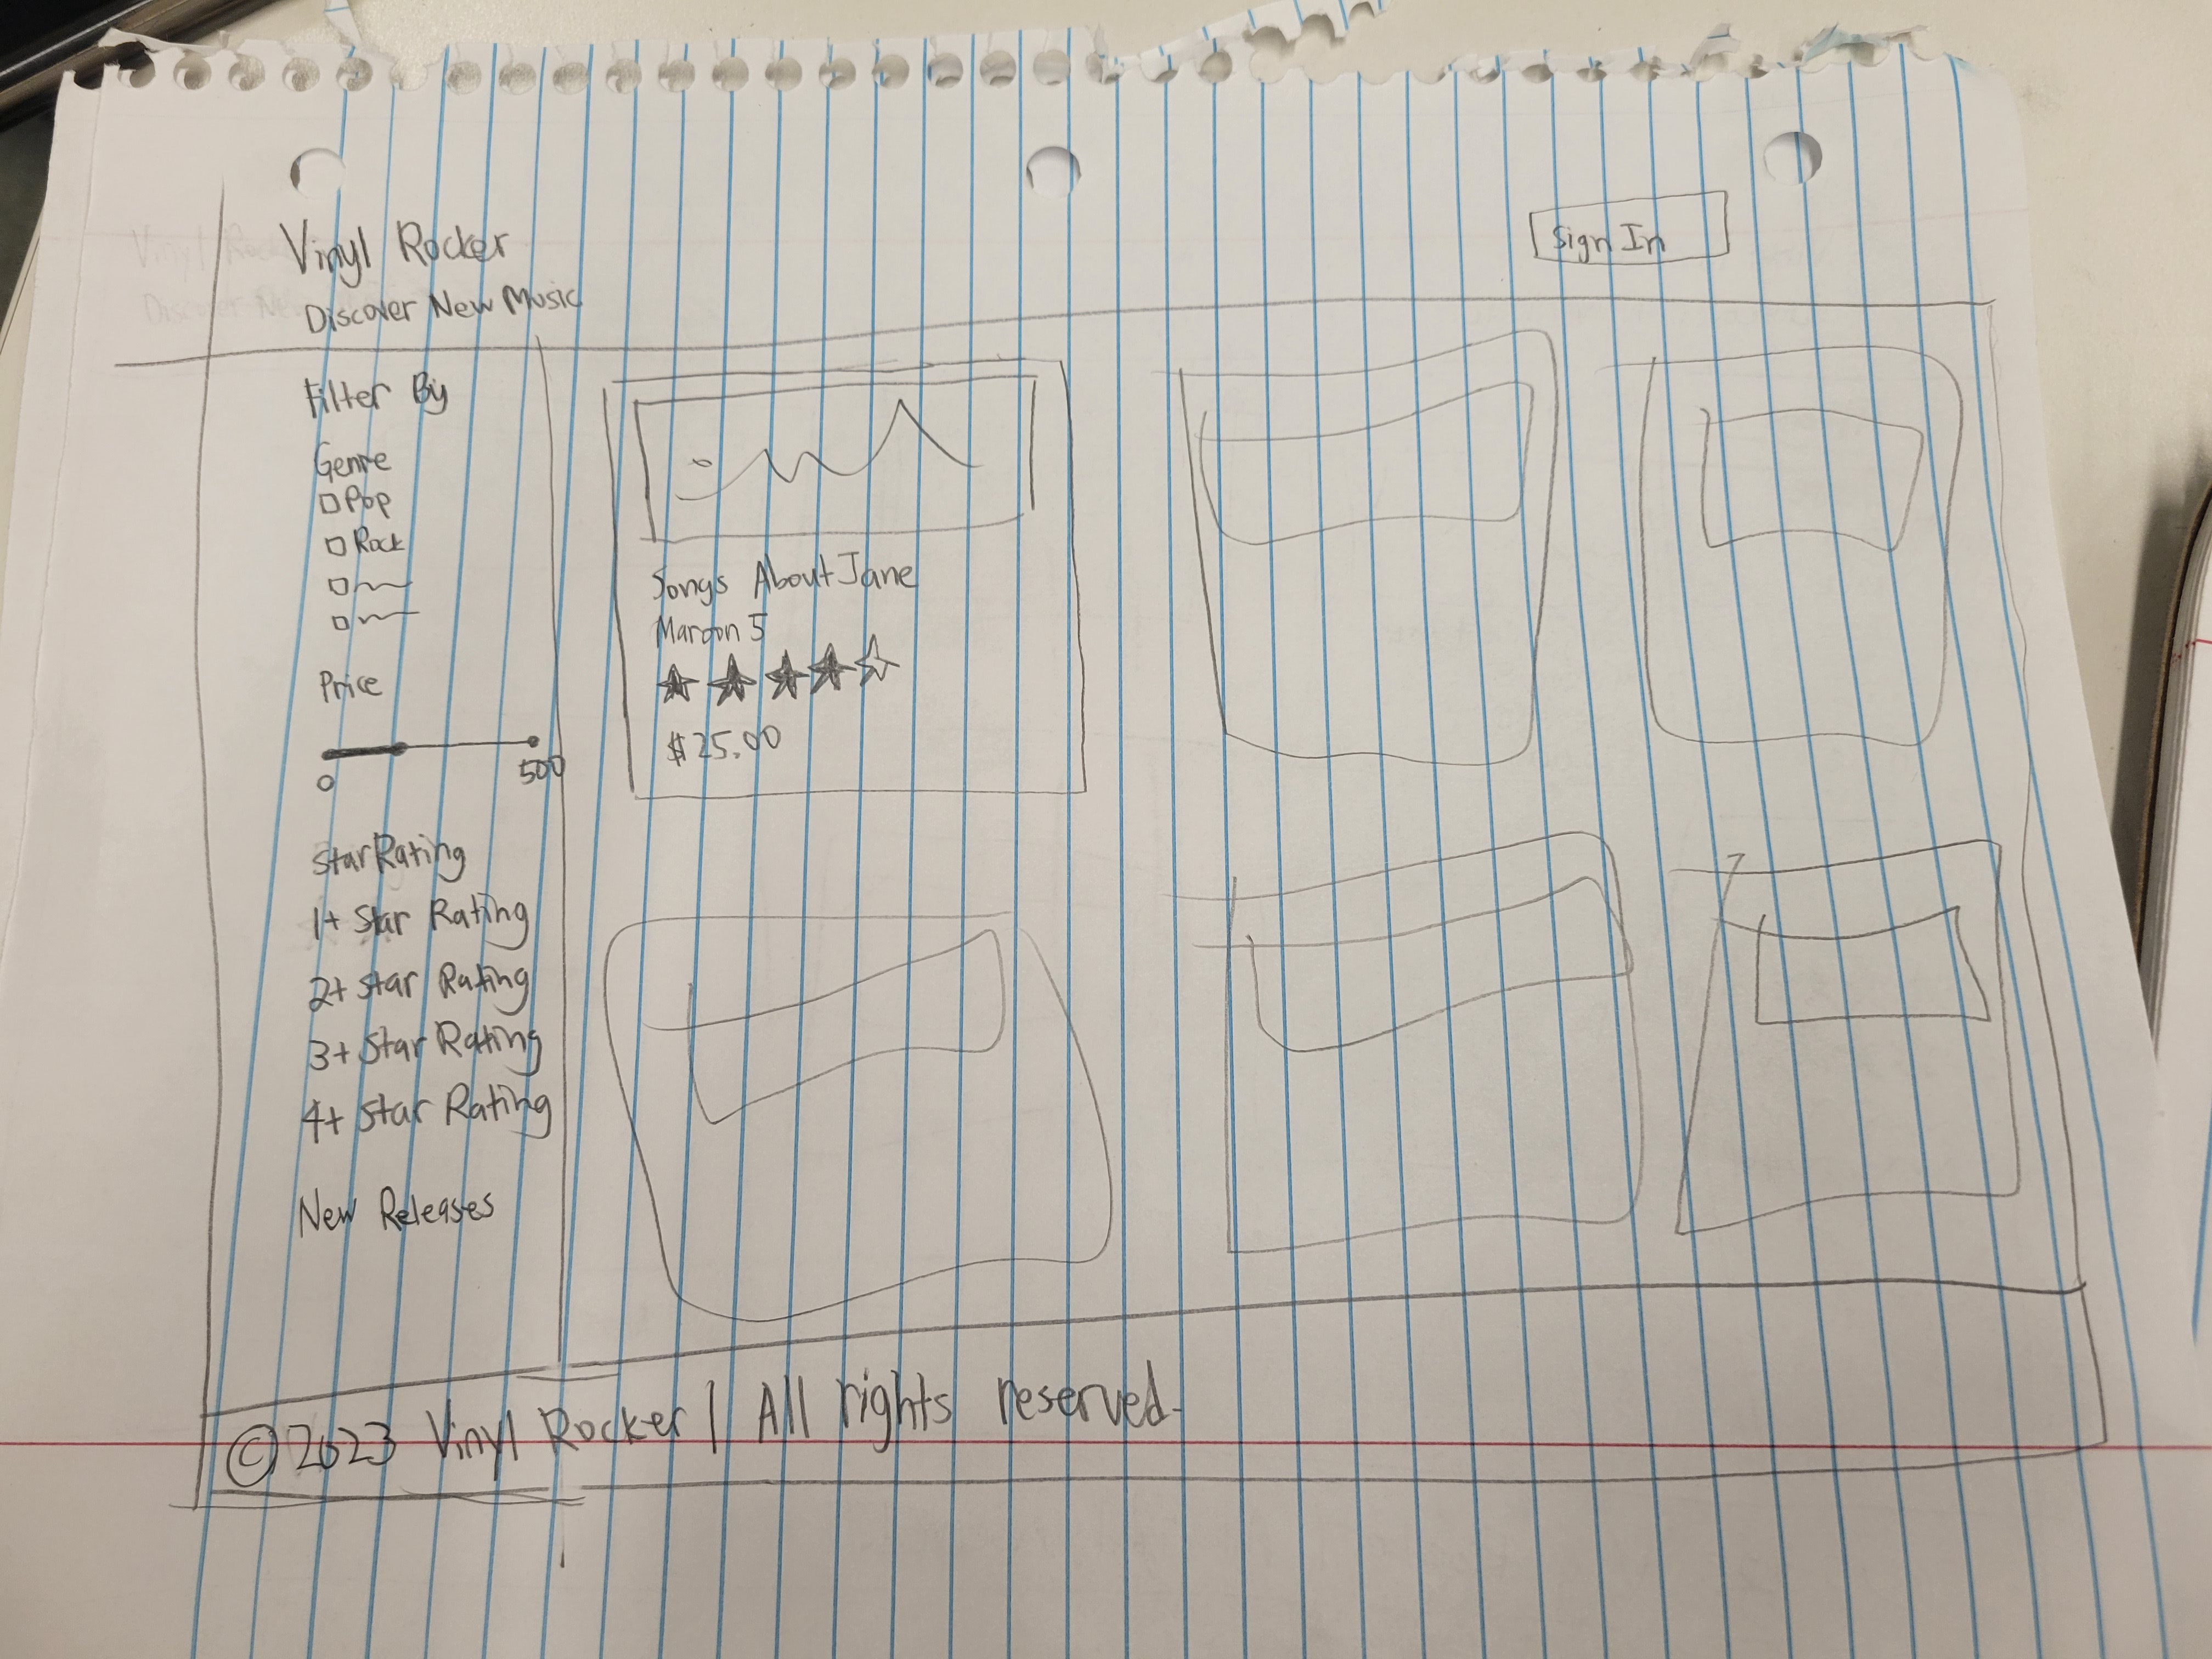 Vinyl Rocker
Discover New Music
Sign In
Filter By
Genre
Pop
Rock
Price
0
500
Star Rating
1+ Star Rating
2+ Star Rating
3+ Star Rating
4+ Star Rating
New Releases
Songs About Jane
Maroon 5
$25.00
© 2023 Vinyl Rocker | All rights reserved.